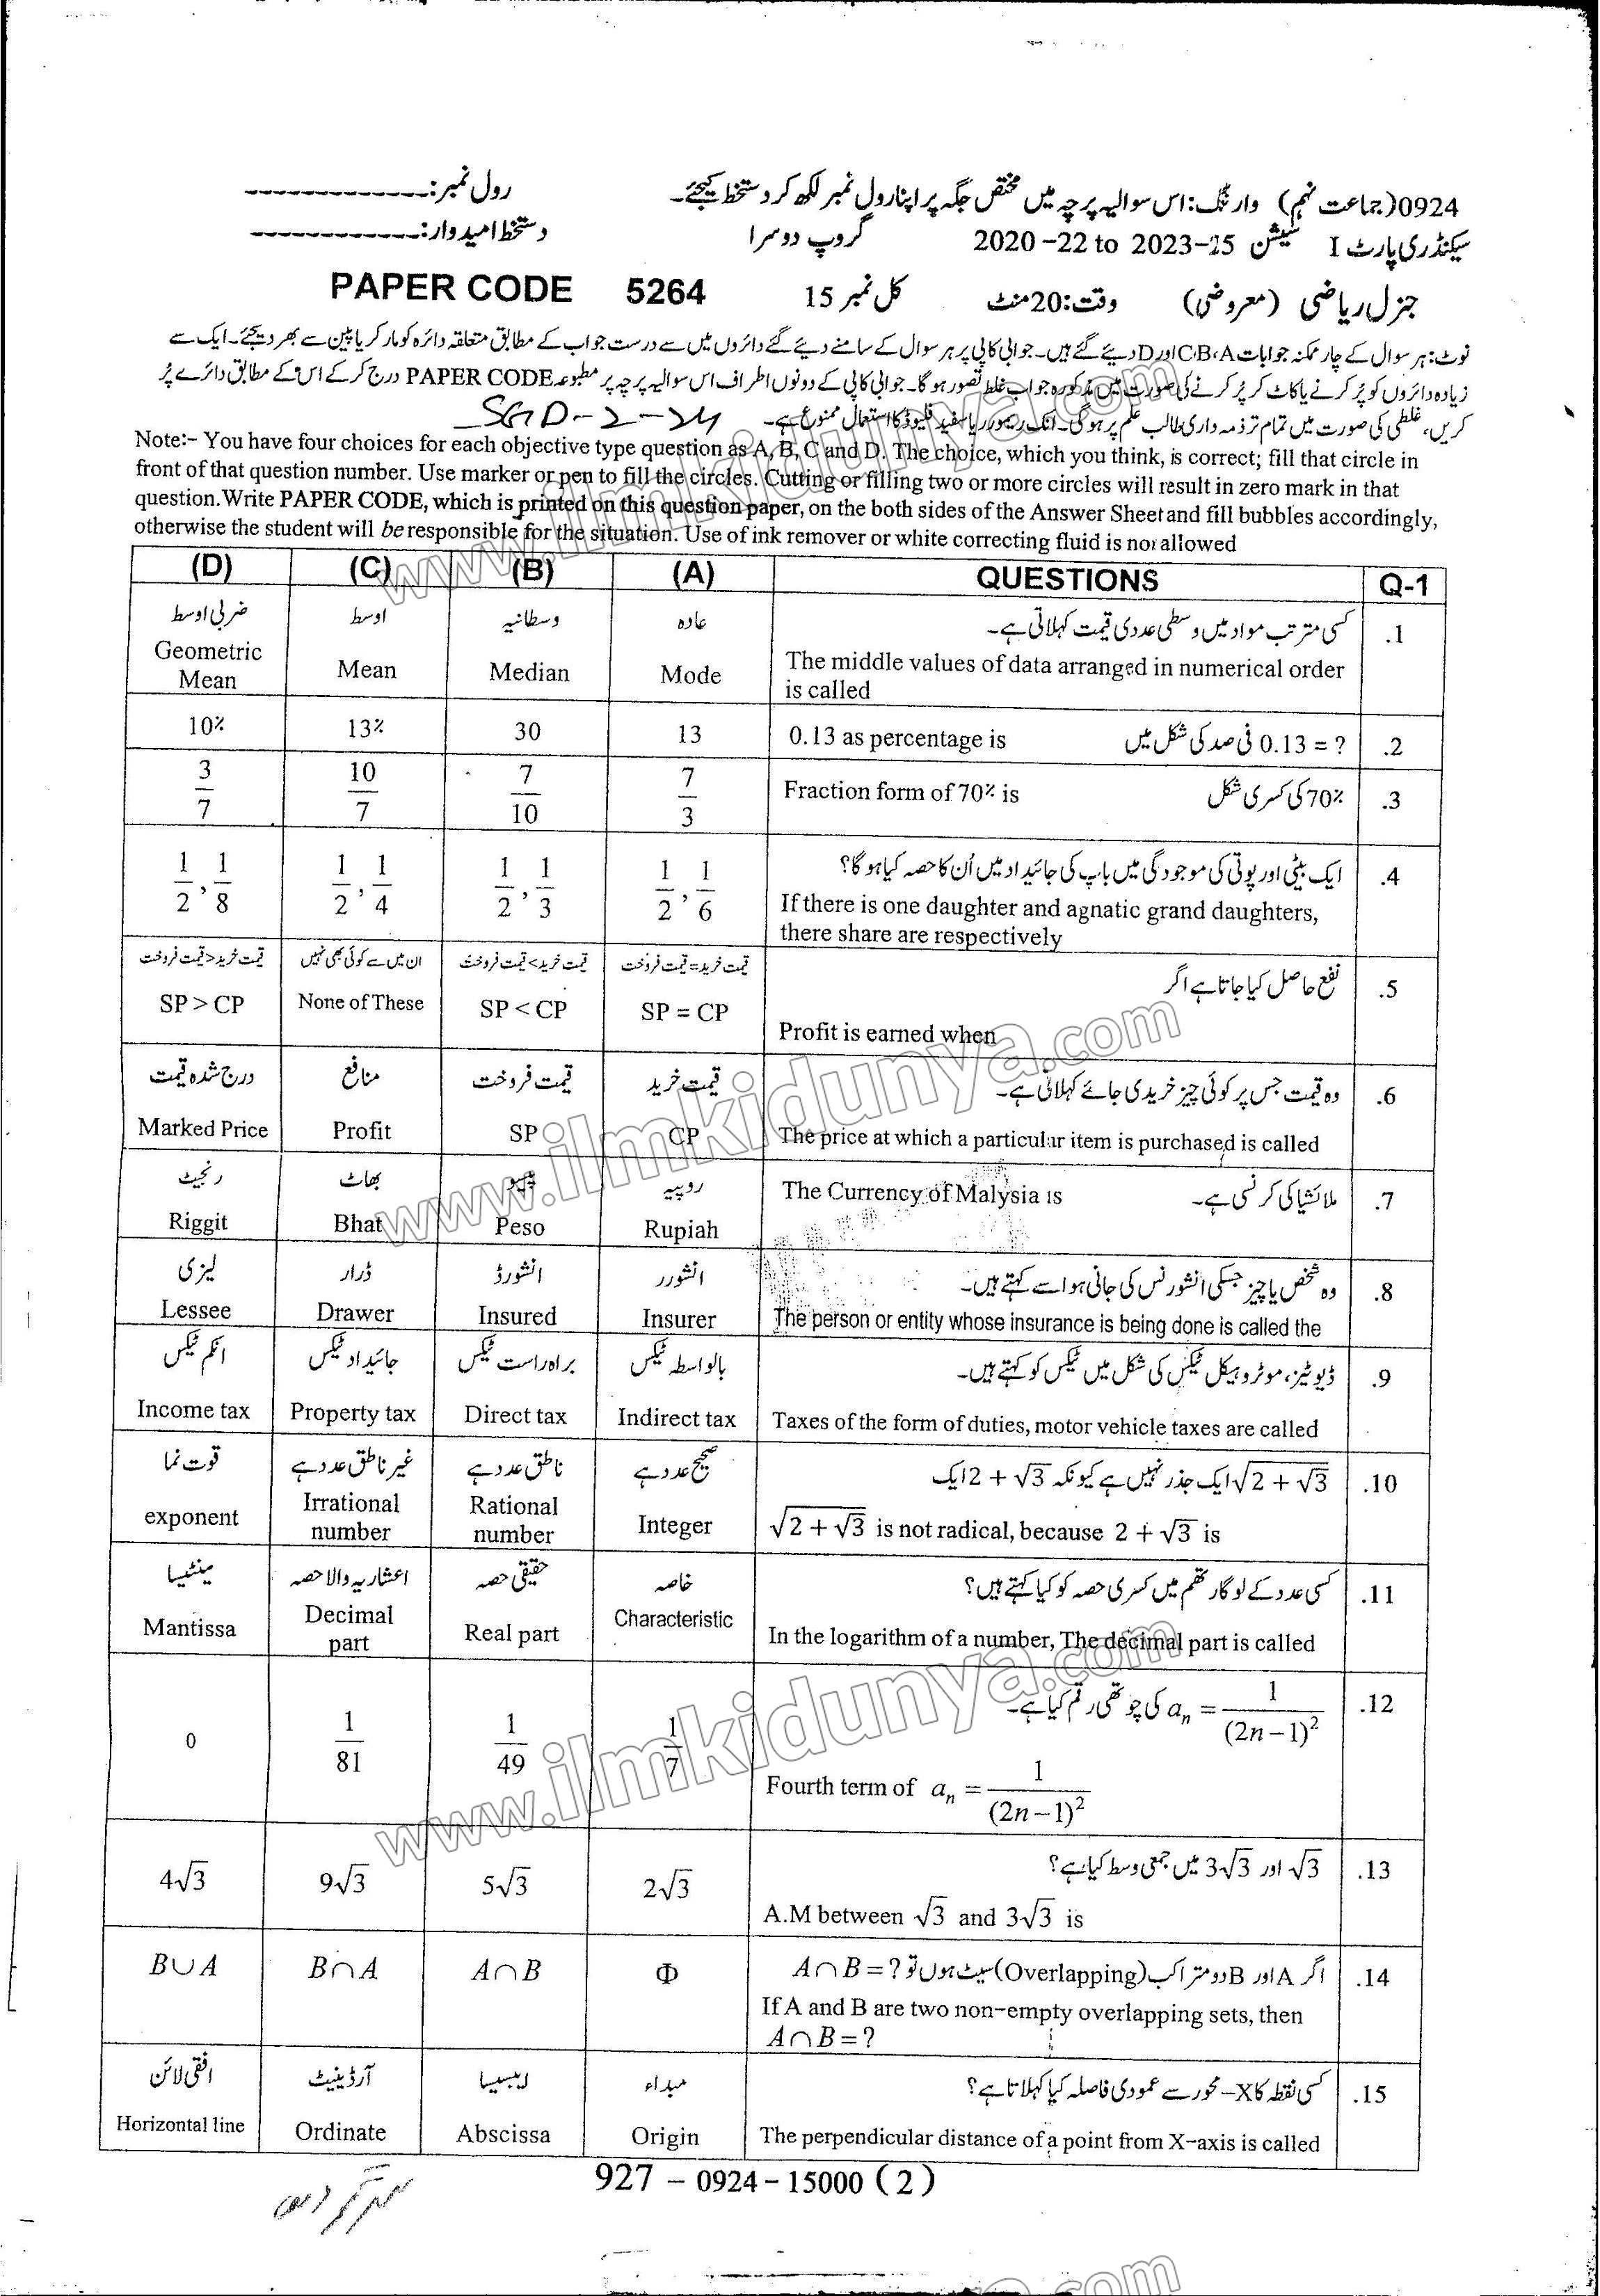 0924(جماعت نہم) وارننگ: اس سوالیہ پرچہ میں مختص جگہ پر اپنا رول نمبر لکھ کر دستخط کیجئے۔ رول نمبر:
سیکنڈری پارٹ I سیشن 2020-22 to 2023-25 گروپ دوسرا دستخط امیدوار:
جنرل ریاضی (معروضی) وقت: 20 منٹ کل نمبر 15 PAPER CODE 5264
نوٹ: ہر سوال کے چار ممکنہ جوابات C،B،A اور D دیئے گئے ہیں۔ جوابی کاپی پر ہر سوال کے سامنے دیئے گئے دائروں میں سے درست جواب کے مطابق متعلقہ دائرہ کو مارکر یا پین سے بھر دیجئے۔ ایک سے
زیادہ دائروں کو پُر کرنے یا کاٹ کر پُر کرنے کی صورت میں مذکورہ جواب غلط تصور ہوگا۔ جوابی کاپی کے دونوں اطراف اس سوالیہ پرچہ پر مطبوعہ PAPER CODE درج کر کے اس کے مطابق دائرے پُر
کریں، غلطی کی صورت میں تمام تر ذمہ داری طالب علم پر ہوگی۔ انک ریمور یا سفید فلیوڈ کا استعمال ممنوع ہے۔ SGD-2-24
Note:- You have four choices for each objective type question as A, B, C and D. The choice, which you think, is correct; fill that circle in
front of that question number. Use marker or pen to fill the circles. Cutting or filling two or more circles will result in zero mark in that
question. Write PAPER CODE, which is printed on this question paper, on the both sides of the Answer Sheet and fill bubbles accordingly,
otherwise the student will be responsible for the situation. Use of ink remover or white correcting fluid is not allowed
(D) (C) (B) (A) QUESTIONS Q-1
ضربی اوسط اوسط وسطانیہ عادہ کسی مترتب مواد میں وسطی عددی قیمت کہلاتی ہے۔ .1
Geometric Mean Mean Median Mode The middle values of data arranged in numerical order
is called
10% 13% 30 13 0.13 as percentage is 0.13 = ? فی صد کی شکل میں .2
3/7 10/7 7/10 7/3 Fraction form of 70% is 70% کی کسری شکل .3
ایک بیٹی اور پوتی کی موجودگی میں باپ کی جائیداد میں اُن کا حصہ کیا ہوگا؟ .4
1/2, 1/8 1/2, 1/4 1/2, 1/3 1/2, 1/6 If there is one daughter and agnatic grand daughters,
there share are respectively
قیمت خرید<قیمت فروخت ان میں سے کوئی بھی نہیں قیمت خرید>قیمت فروخت قیمت خرید=قیمت فروخت نفع حاصل کیا جاتا ہے اگر .5
SP > CP None of These SP < CP SP = CP Profit is earned when
درج شدہ قیمت منافع قیمت فروخت قیمت خرید وہ قیمت جس پر کوئی چیز خریدی جائے کہلاتی ہے۔ .6
Marked Price Profit SP CP The price at which a particular item is purchased is called
رنجیٹ بھاٹ روپیہ The Currency of Malysia is ملائشیا کی کرنسی ہے۔ .7
Riggit Bhat Peso Rupiah
لیزی ڈرار انشورڈ انشورر وہ شخص یا چیز جسکی انشورنس کی جاتی ہو اسے کہتے ہیں۔ .8
Lessee Drawer Insured Insurer The person or entity whose insurance is being done is called the
انکم ٹیکس جائیداد ٹیکس براہ راست ٹیکس بالواسطہ ٹیکس ڈیوٹیز، موٹر وہیکل ٹیکس کی شکل میں ٹیکس کو کہتے ہیں۔ .9
Income tax Property tax Direct tax Indirect tax Taxes of the form of duties, motor vehicle taxes are called
قوت نما غیر ناطق عدد ہے ناطق عدد ہے صحیح عدد ہے √(2 + √3) ایک جذر نہیں ہے کیونکہ 2 + √3 ایک .10
exponent Irrational number Rational number Integer √(2 + √3) is not radical, because 2 + √3 is
مینٹیسا اعشاریہ والا حصہ حقیقی حصہ خاصہ کسی عدد کے لوگارتھم میں کسری حصہ کو کیا کہتے ہیں؟ .11
Mantissa Decimal part Real part Characteristic In the logarithm of a number, The decimal part is called
aₙ = 1/(2n−1)² کی چوتھی رقم کیا ہے۔ .12
0 1/81 1/49 1/7 Fourth term of aₙ = 1/(2n−1)²
√3 اور 3√3 میں جمعی وسط کیا ہے؟ .13
4√3 9√3 5√3 2√3 A.M between √3 and 3√3 is
اگر A اور B دو متراکب (Overlapping) سیٹ ہوں تو A∩B = ? .14
B∪A B∩A A∩B Φ If A and B are two non-empty overlapping sets, then
A∩B = ?
افقی لائن آرڈینیٹ ایبسیسا مبداء کسی نقطہ کا X- محور سے عمودی فاصلہ کیا کہلاتا ہے؟ .15
Horizontal line Ordinate Abscissa Origin The perpendicular distance of a point from X-axis is called
927 - 0924 - 15000 (2)
www.ilmkidunya.com
www.ilmkidunya.com
www.ilmkidunya.com